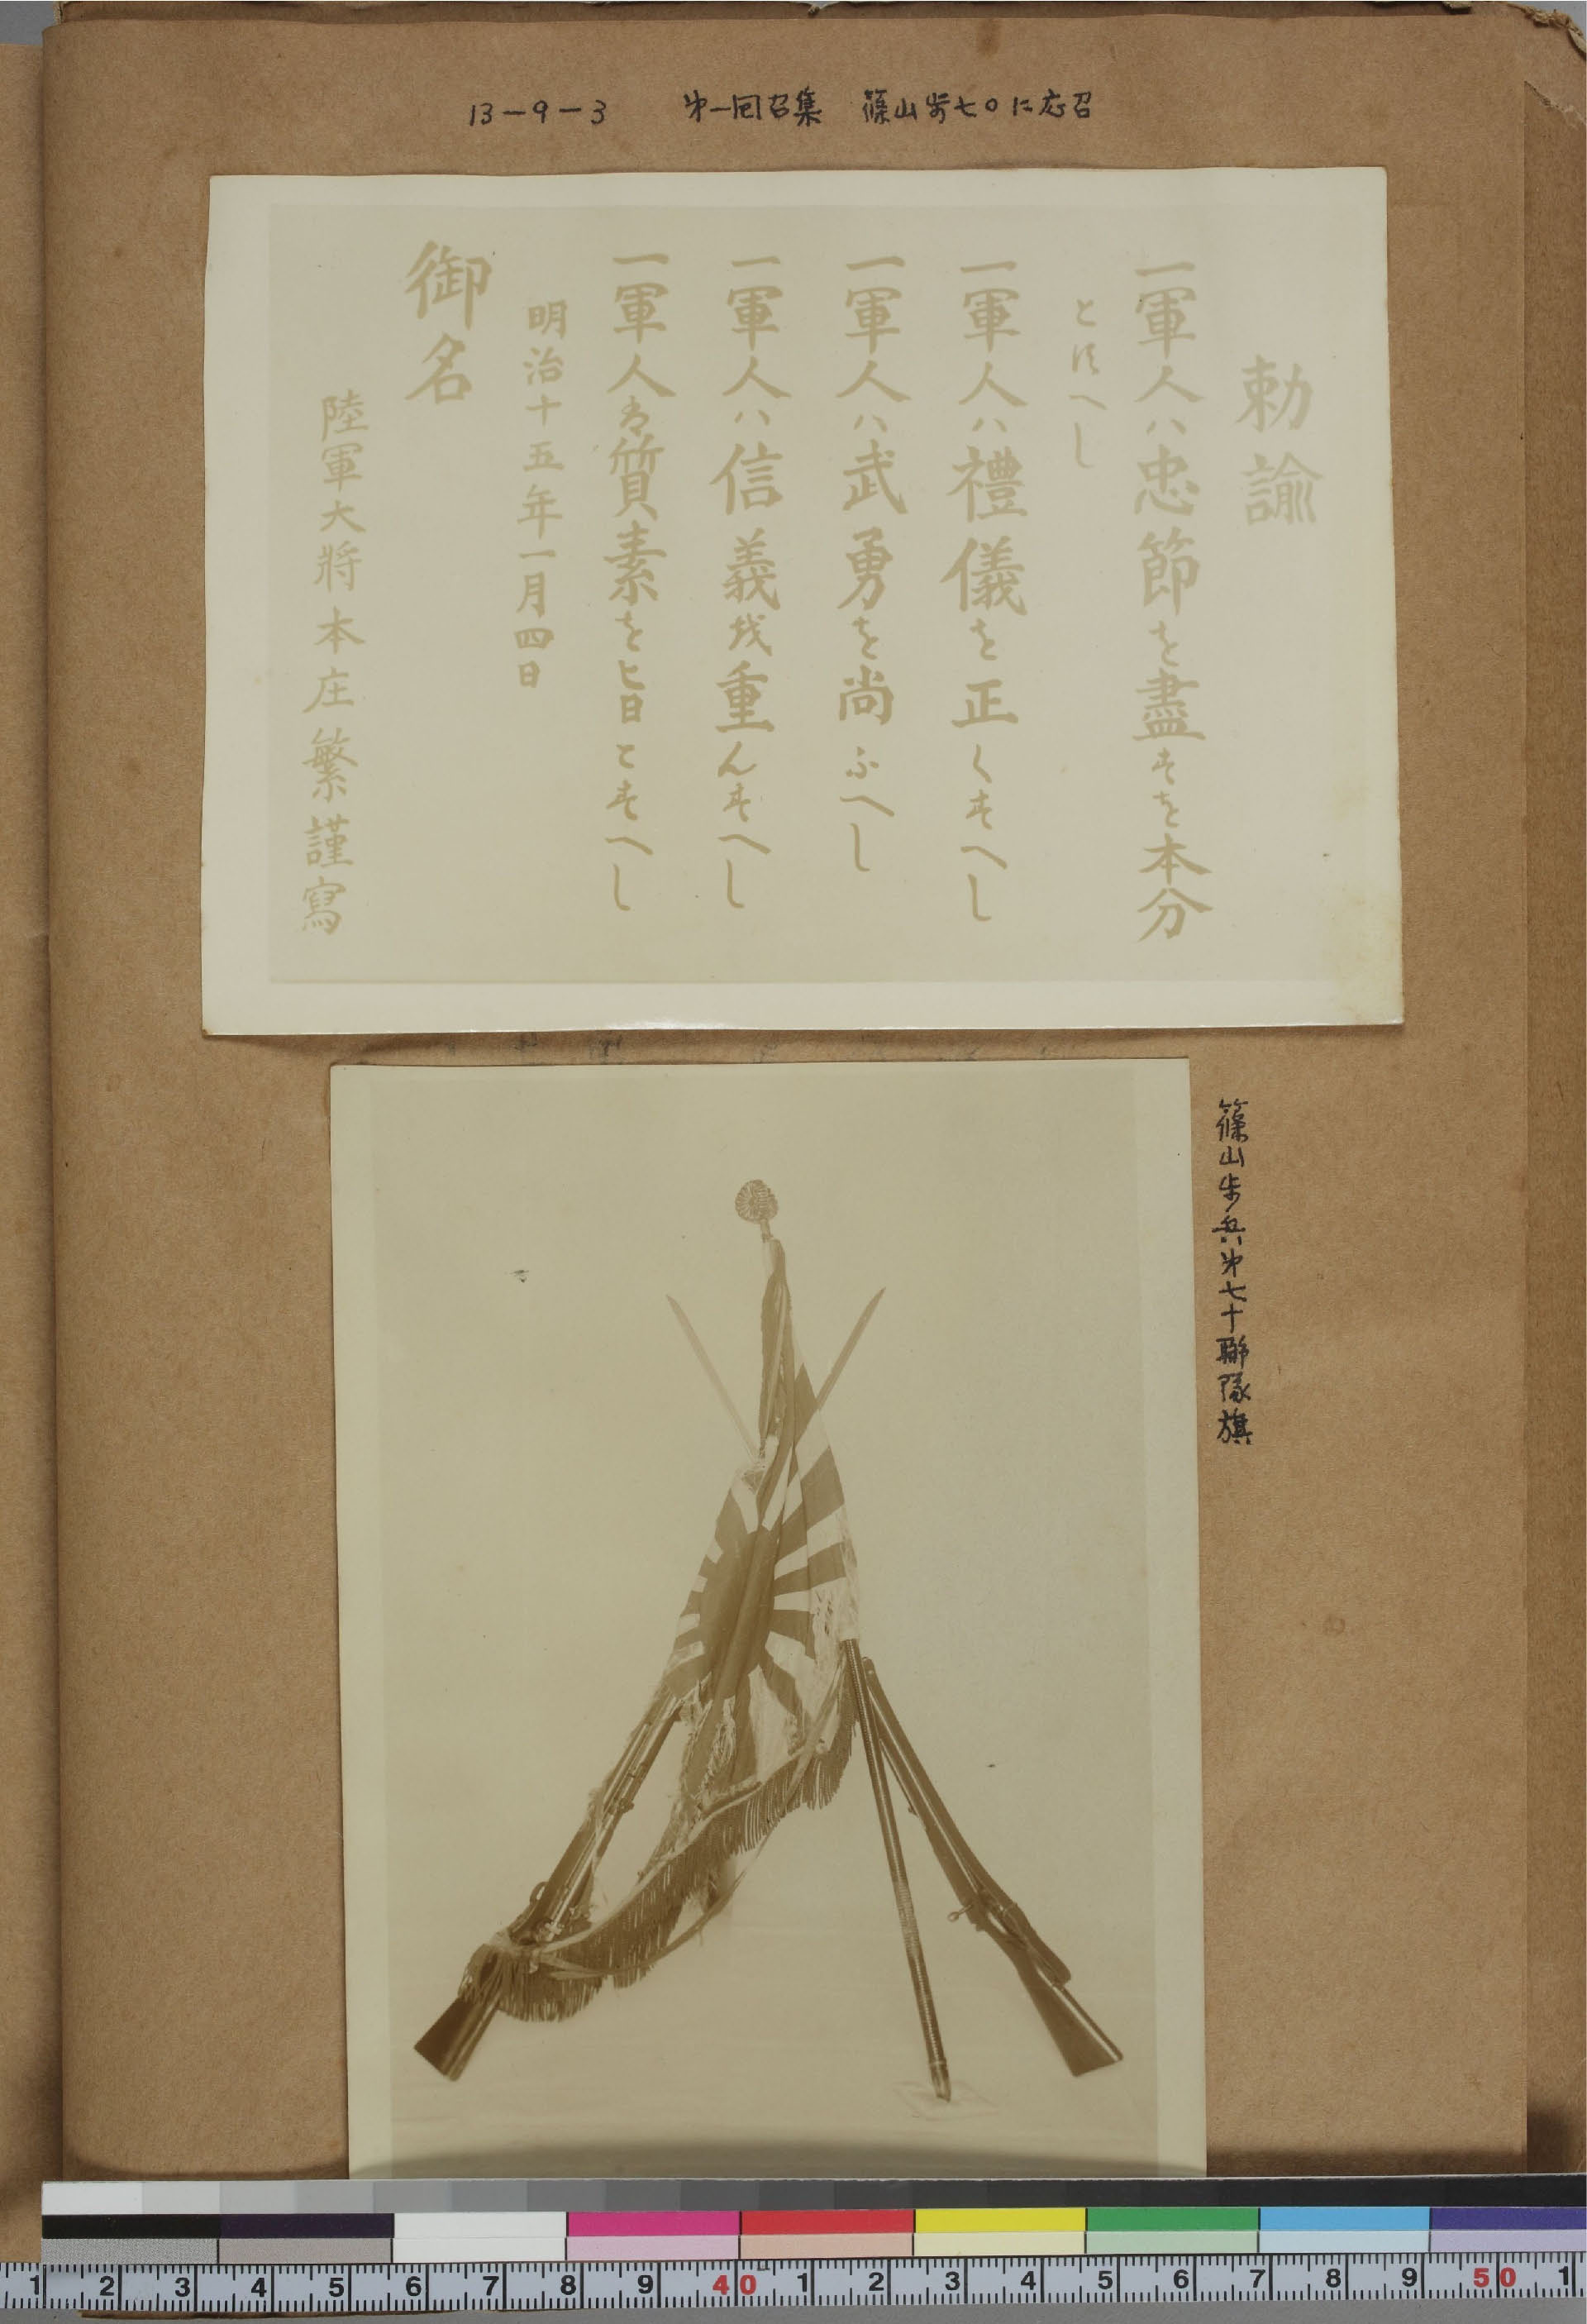 13-9-3 オ一回召集 篠山歩七〇に応召
勅諭
一軍人ハ忠節を盡すを本分
とすへし
一軍人ハ禮儀を正くすへし
一軍人ハ武勇を尚ふへし
一軍人ハ信義を重んすへし
一軍人は質素を旨とすへし
明治十五年一月四日
御名
陸軍大將本庄繁謹寫
篠山歩兵オ七十聯隊旗
1 2 3 4 5 6 7 8 9 40 1 2 3 4 5 6 7 8 9 50 1